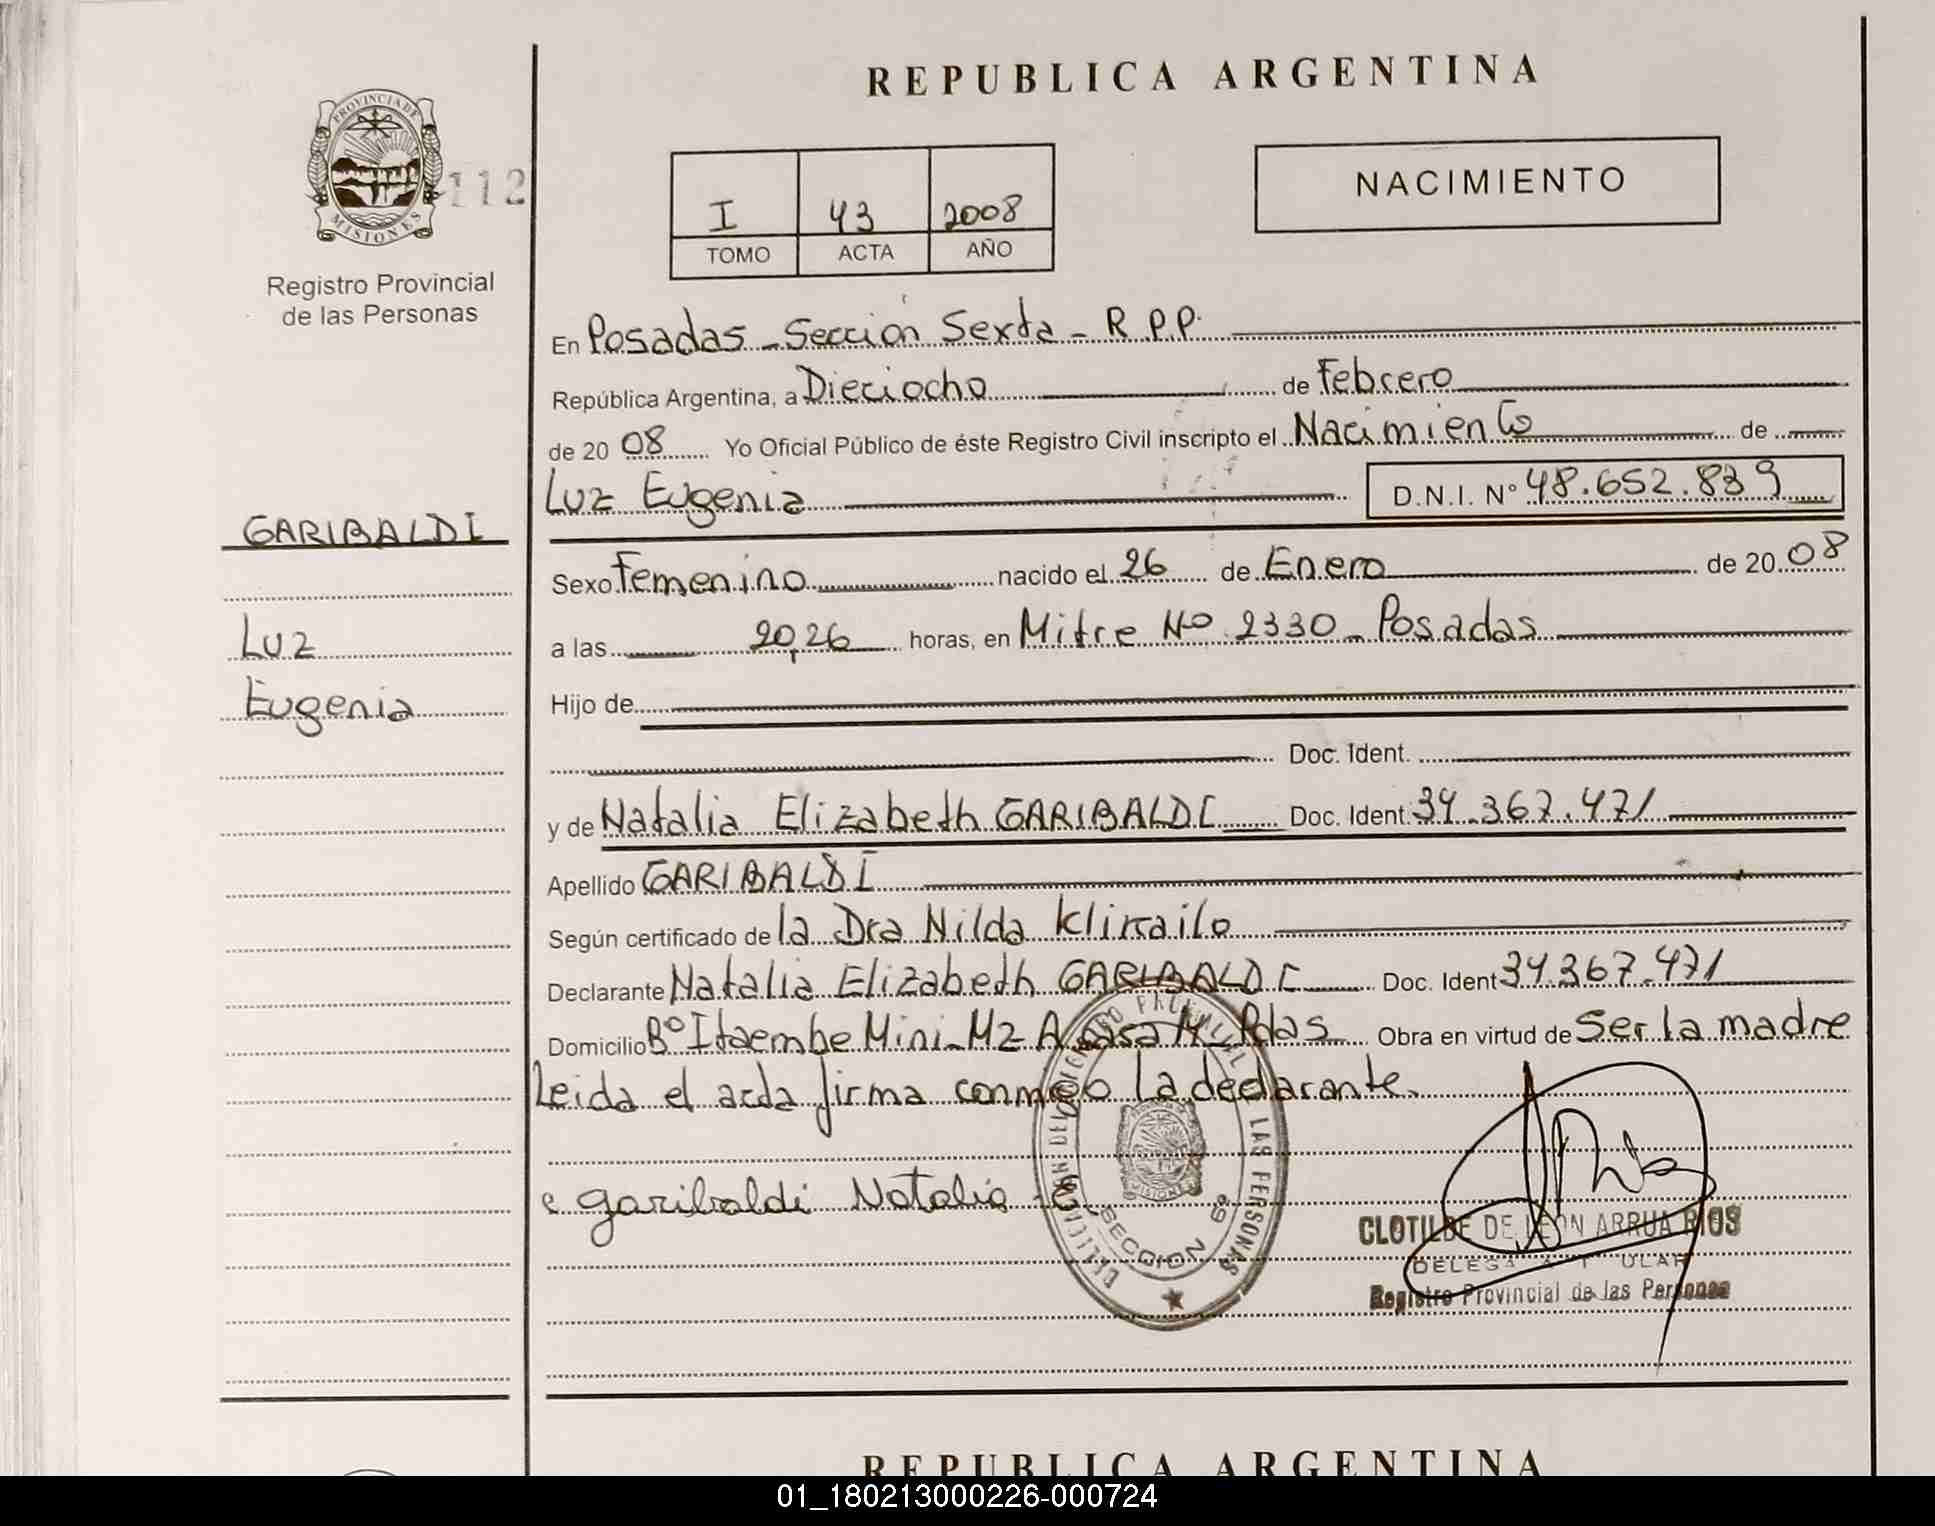 REPUBLICA ARGENTINA
PROVINCIA DE
MISIONES
112
Registro Provincial
de las Personas
I 43 2008
TOMO ACTA AÑO
NACIMIENTO
En Posadas - Sección Sexta - R.P.P.
República Argentina, a Dieciocho de Febrero
de 20 08 Yo Oficial Público de éste Registro Civil inscripto el Nacimiento de
Luz Eugenia D.N.I. N° 48.652.839
GARIBALDI
Luz
Eugenia
Sexo Femenino nacido el 26 de Enero de 20 08
a las 20,26 horas, en Mitre Nº 2330 - Posadas
Hijo de
Doc. Ident.
y de Natalia Elizabeth GARIBALDI Doc. Ident. 34.367.471
Apellido GARIBALDI
Según certificado de la Dra Nilda
Declarante Natalia Elizabeth GARIBALDI Doc. Ident 34.367.471
Domicilio Bº Itaembe Mini - Mz A casa Pdas Obra en virtud de Ser la madre
Leida el acta firma conmigo la declarante.
garibaldi Natalia E
LAS PERSONAS
MISIONES
SECCION 6ª
CLOTILDE DE LEON ARRUA RIOS
Registro Provincial de las Personas
REPUBLICA ARGENTINA
01_180213000226-000724